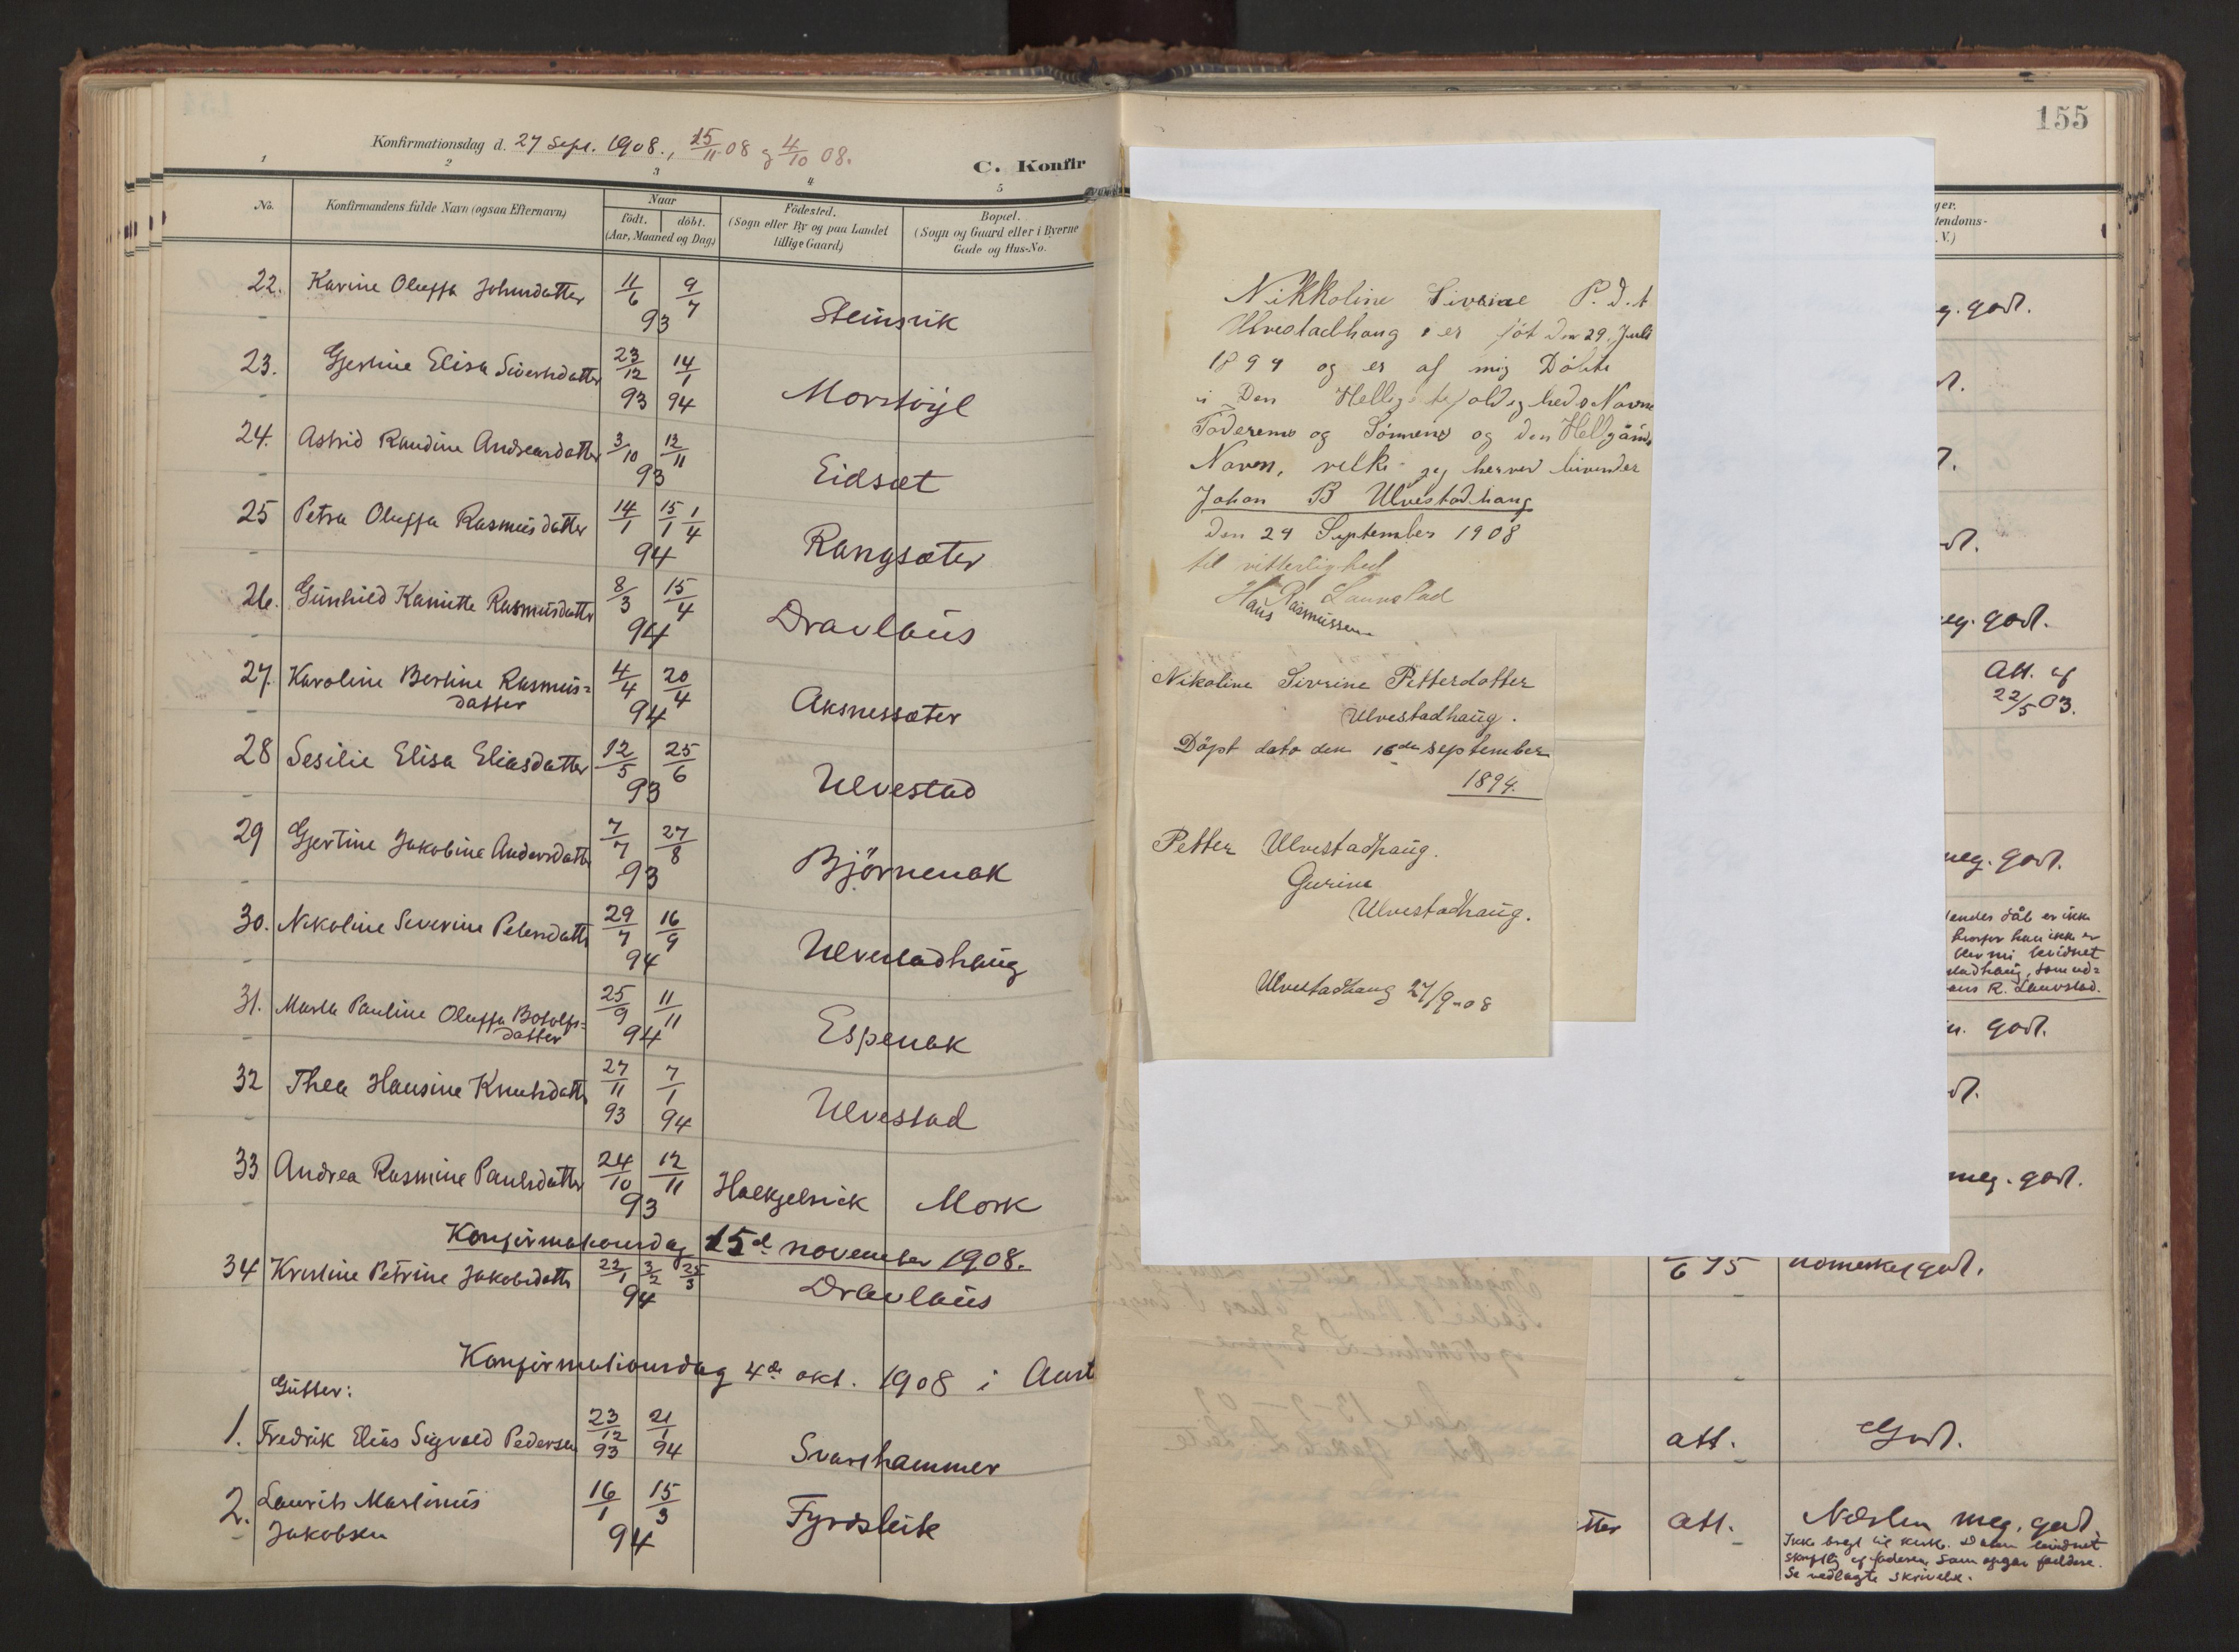 155
Konfirmationsdag d. 27 Sept. 1908., 15/11 08 og 4/10 08.
C. Konfir
1 2 3 4 5
No.
Konfirmandens fulde Navn (ogsaa Efternavn)
Naar
födt. döbt.
(Aar, Maaned og Dag)
Födested.
(Sogn eller By og paa Landet
tillige Gaard)
Bopæl.
(Sogn og Gaard eller i Byerne
Gade og Hus-No.
22. Karine Oluffa Johnsdatter 11/6 9/7 93 Steinsvik
23. Gjertine Elisa Sivertsdatter 23/12 93 14/1 94 Morstöyl
24. Astrid Raudine Andreasdatter 3/10 12/11 93 Eidsæt
25 Petra Oluffa Rasmusdatter 14/1 15/1 1/4 94 Rangsæter
26. Gunhild Kamitte Rasmusdatter 8/3 15/4 94 Dravlaus
27. Karoline Bertine Rasmus=
datter 4/4 20/4 94 Aksnessæter
28 Sesilie Elisa Eliasdatter 12/5 25/6 93 Ulvestad
29 Gjertine Jakobine Andersdatter 7/7 27/8 93 Björnenak
30. Nikoline Severine Petersdatter 29/7 16/9 94 Ulvestadhaug
31. Marta Pauline Oluffa Botolfs=
datter 25/9 11/11 94 Espenak
32 Thea Hansine Knutsdatter 27/11 93 7/1 94 Ulvestad
33 Andrea Rasmine Paulsdatter 24/10 12/11 93 Halkjelsvik Mork
Konfirmationsdag 15d november 1908.
34 Kristine Petrine Jakobsdatter 22/1 3/2 25/3 94 Dravlaus
Konfirmationsdag 4de okt. 1908 i Aust
Gutter:
1. Fredrik Elias Sigvald Pedersen 23/12 93 21/1 94 Svarthammer
2. Laurits Martinus
Jakobsen 16/1 15/3 94 Fyrdsleite
Nikkoline Sivrine P. d. t
Ulvestadhaug er föt den 29. Juli
1894 og er af mig Döbte
i Den Hellige Navn
Föderens og Sönnens og den Helligånds
Naven, jeg herved bivender
Johan B Ulvestadhaug
den 29 September 1908
til vitterlighed
Hans Rasmussen Lauvstad
Nikoline Sivrine Petterdotter
Ulvestadhaug.
Döpt dato den 16de september
1894.
Petter Ulvestadhaug.
Gurine
Ulvestadhaug.
Ulvestadhaug 27/9-08
ger.
tendoms-
.V.)
g. god.
d.
d.
d.
eg. god.
Att. af
22/5 03.
meg. god.
endes dåb er ikke
hvorfor hun ikke er
blev nu bevidnet
stadhaug, som ud=
ans R. Lauvstad.
god.
d.
meg. god.
6 95 god.
att. God.
tter att. Næsten meg. god
Ikke bragt til kirke. Daaben bevidnet
skriftlig af faderen, som opgav fadderne.
Se vedlagte skrivelse.